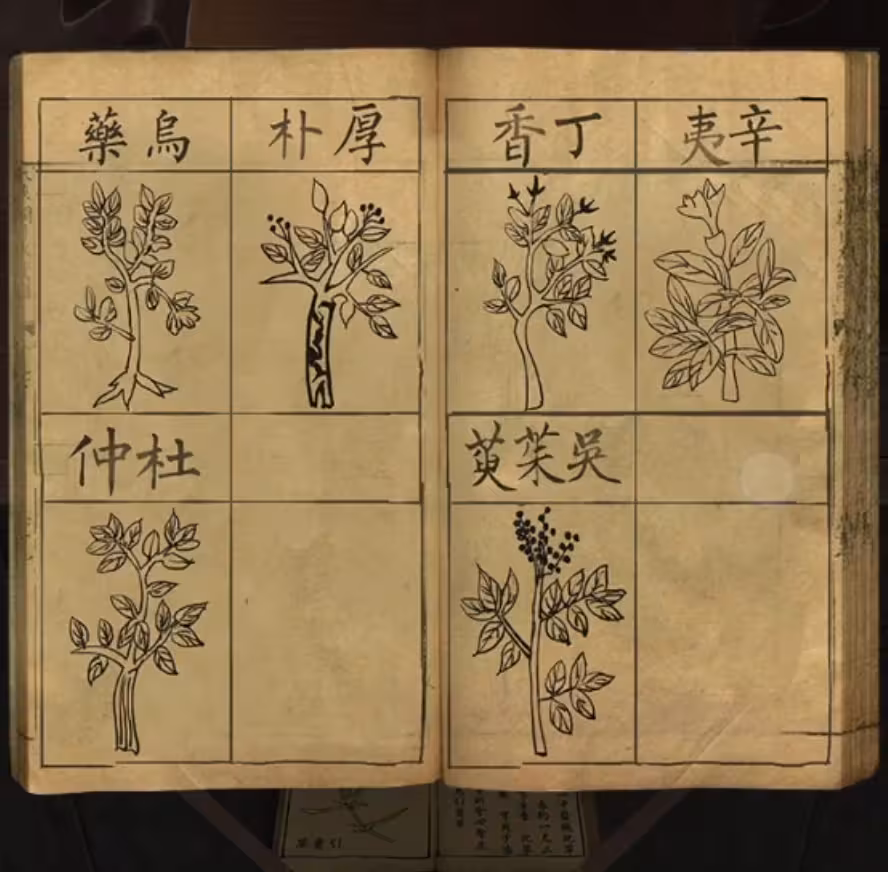 辛夷
丁香
吳茱萸
厚朴
烏藥
杜仲